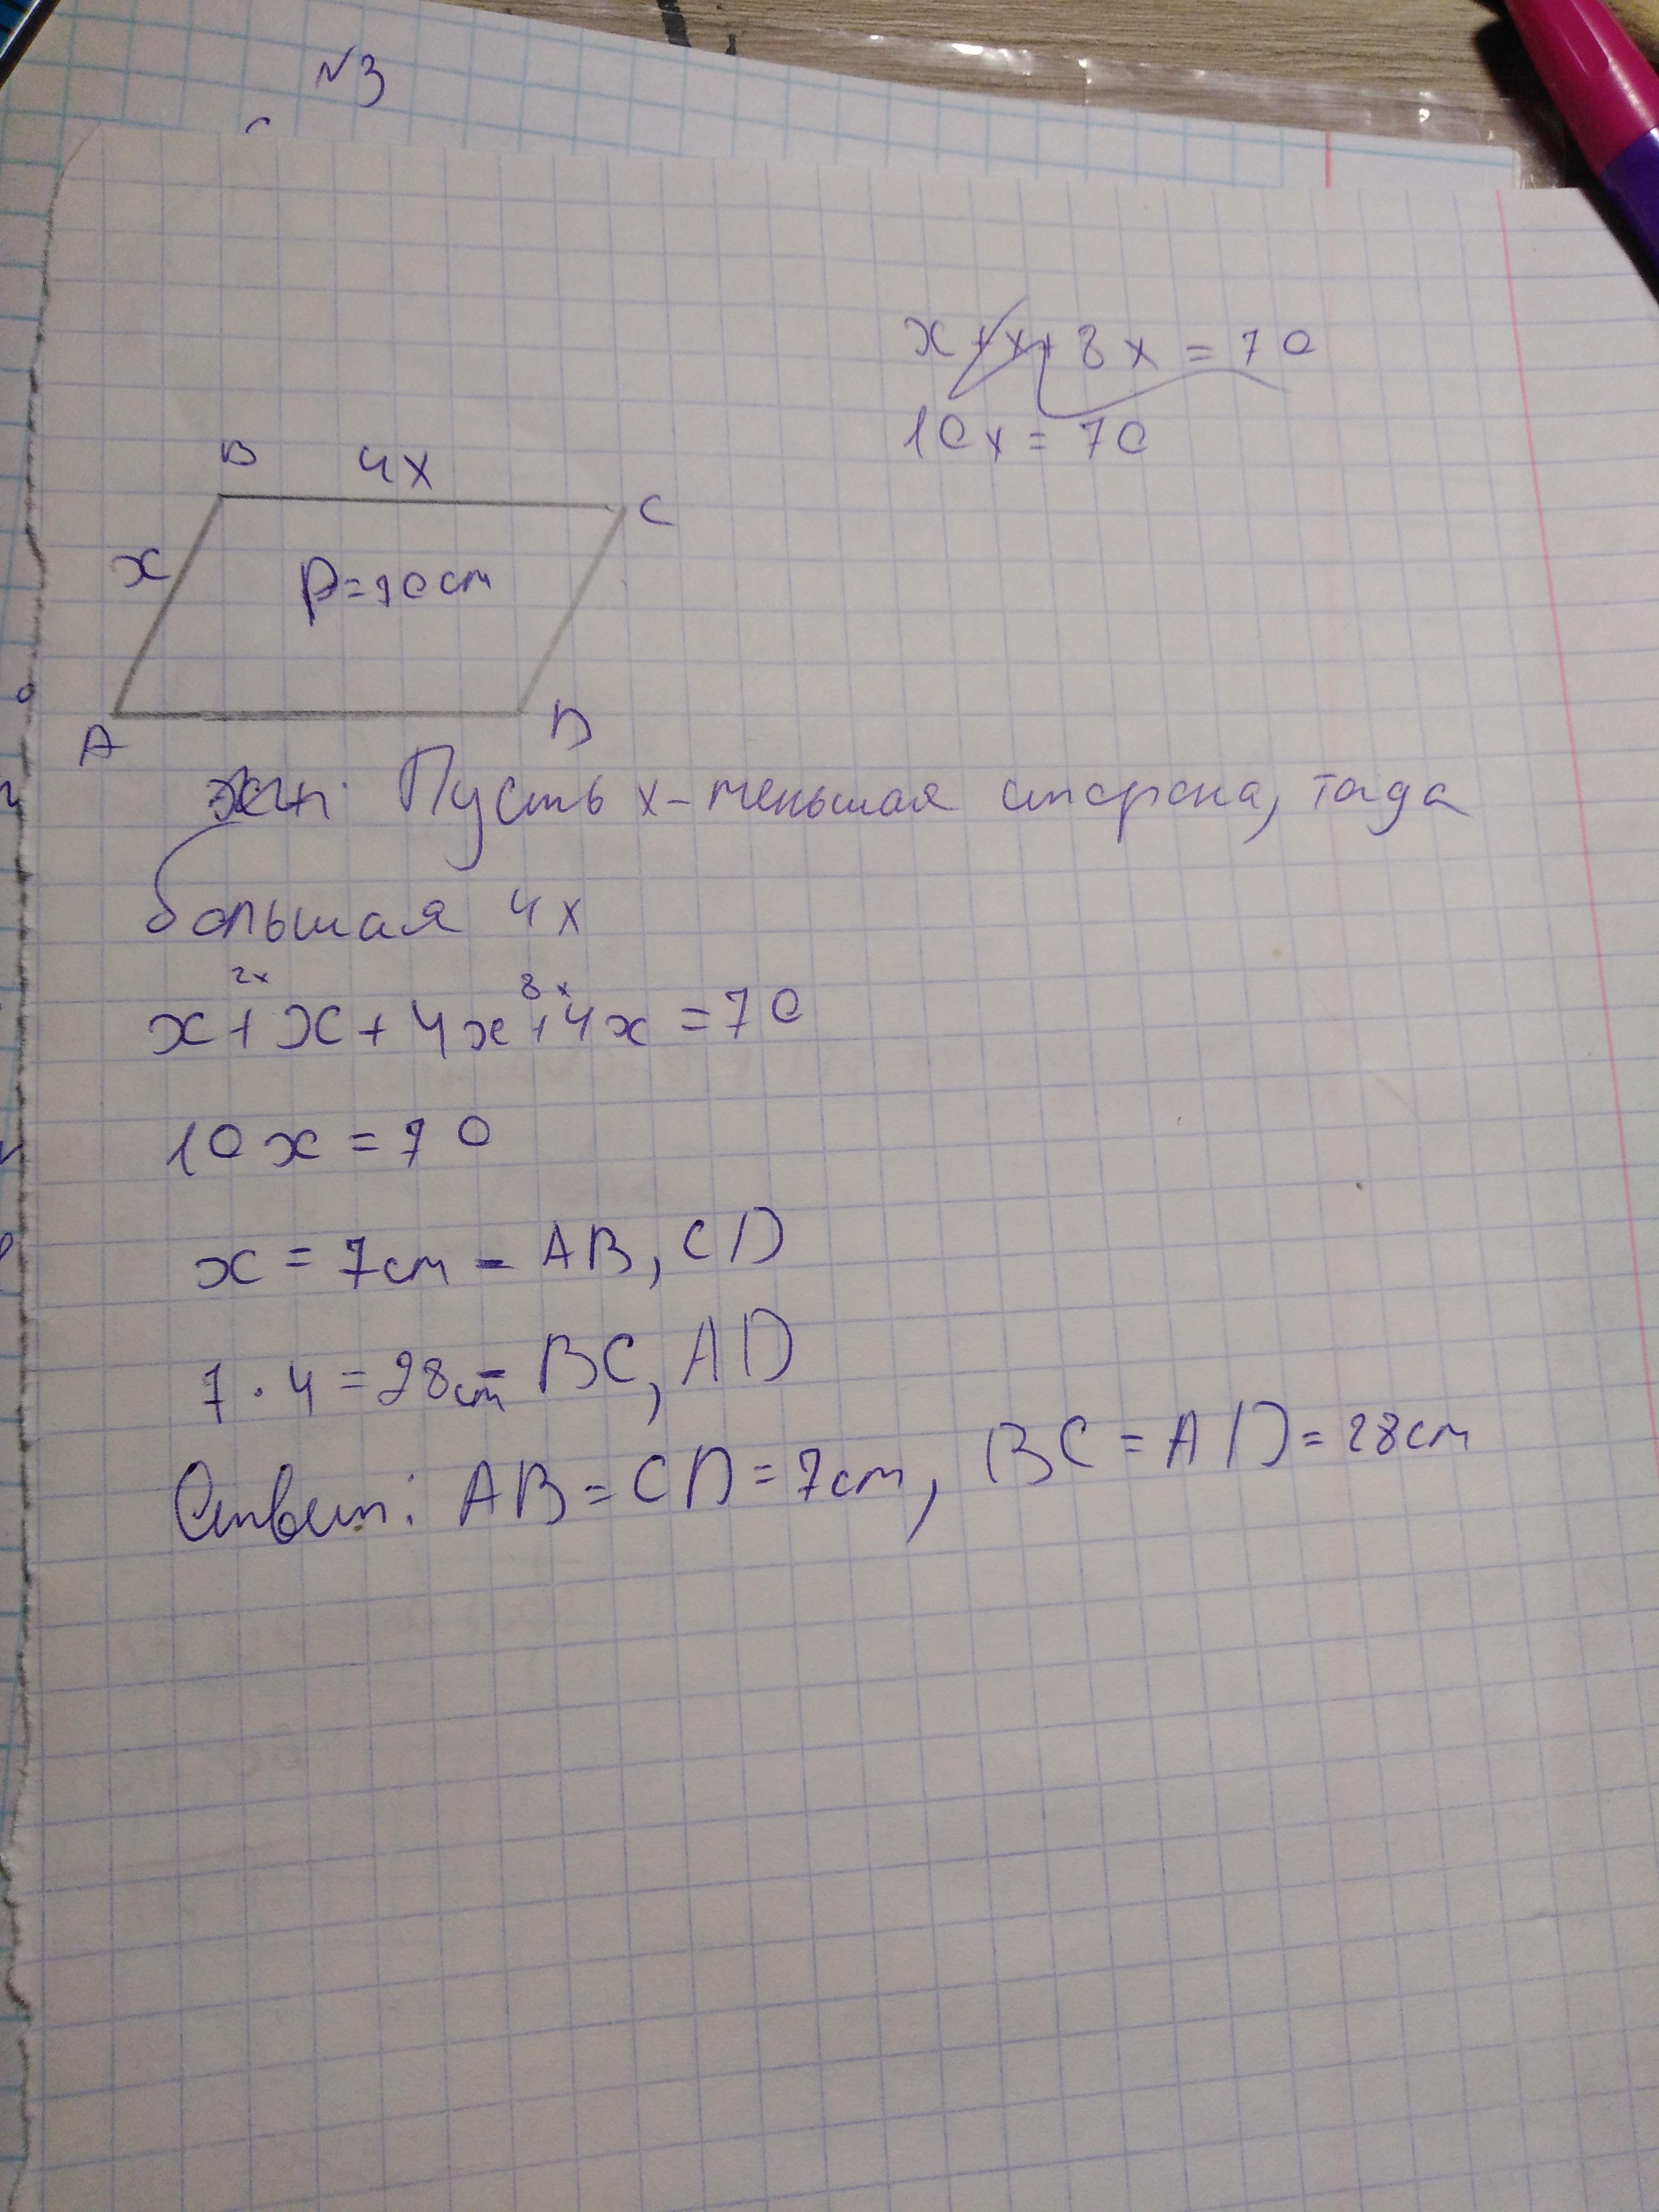 №3
x + x + 8x = 70
10x = 70
B 4x C
x
P=70см
A D
Пусть x - меньшая сторона, тогда
большая 4x
2x 8x
x + x + 4x + 4x = 70
10x = 70
x = 7см - AB, CD
7 · 4 = 28см - BC, AD
Ответ: AB = CD = 7см, BC = AD = 28см